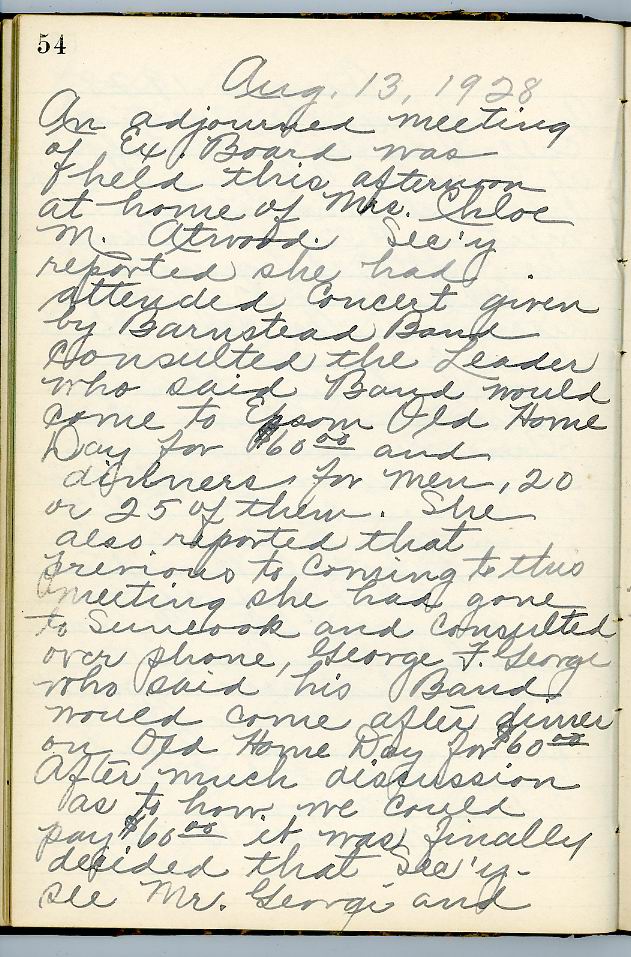 54
Aug. 13, 1928
An adjourned meeting
of Ex. Board was
held this afternoon
at home of Mrs. Chloe
M. Atwood. Sec'y
reported she had
attended Concert given
by Barnstead Band
Consulted the Leader
who said Band would
come to Epsom Old Home
Day for $60⁰⁰ and
dinners for men, 20
or 25 of them. She
also reported that
previous to coming to this
meeting she had gone
to Suncook and consulted
over phone, George F. George
who said his Band
would come after dinner
on Old Home Day for $60⁰⁰
After much discussion
as to how we could
pay $60⁰⁰ it was finally
decided that Sec'y-
see Mr. George and